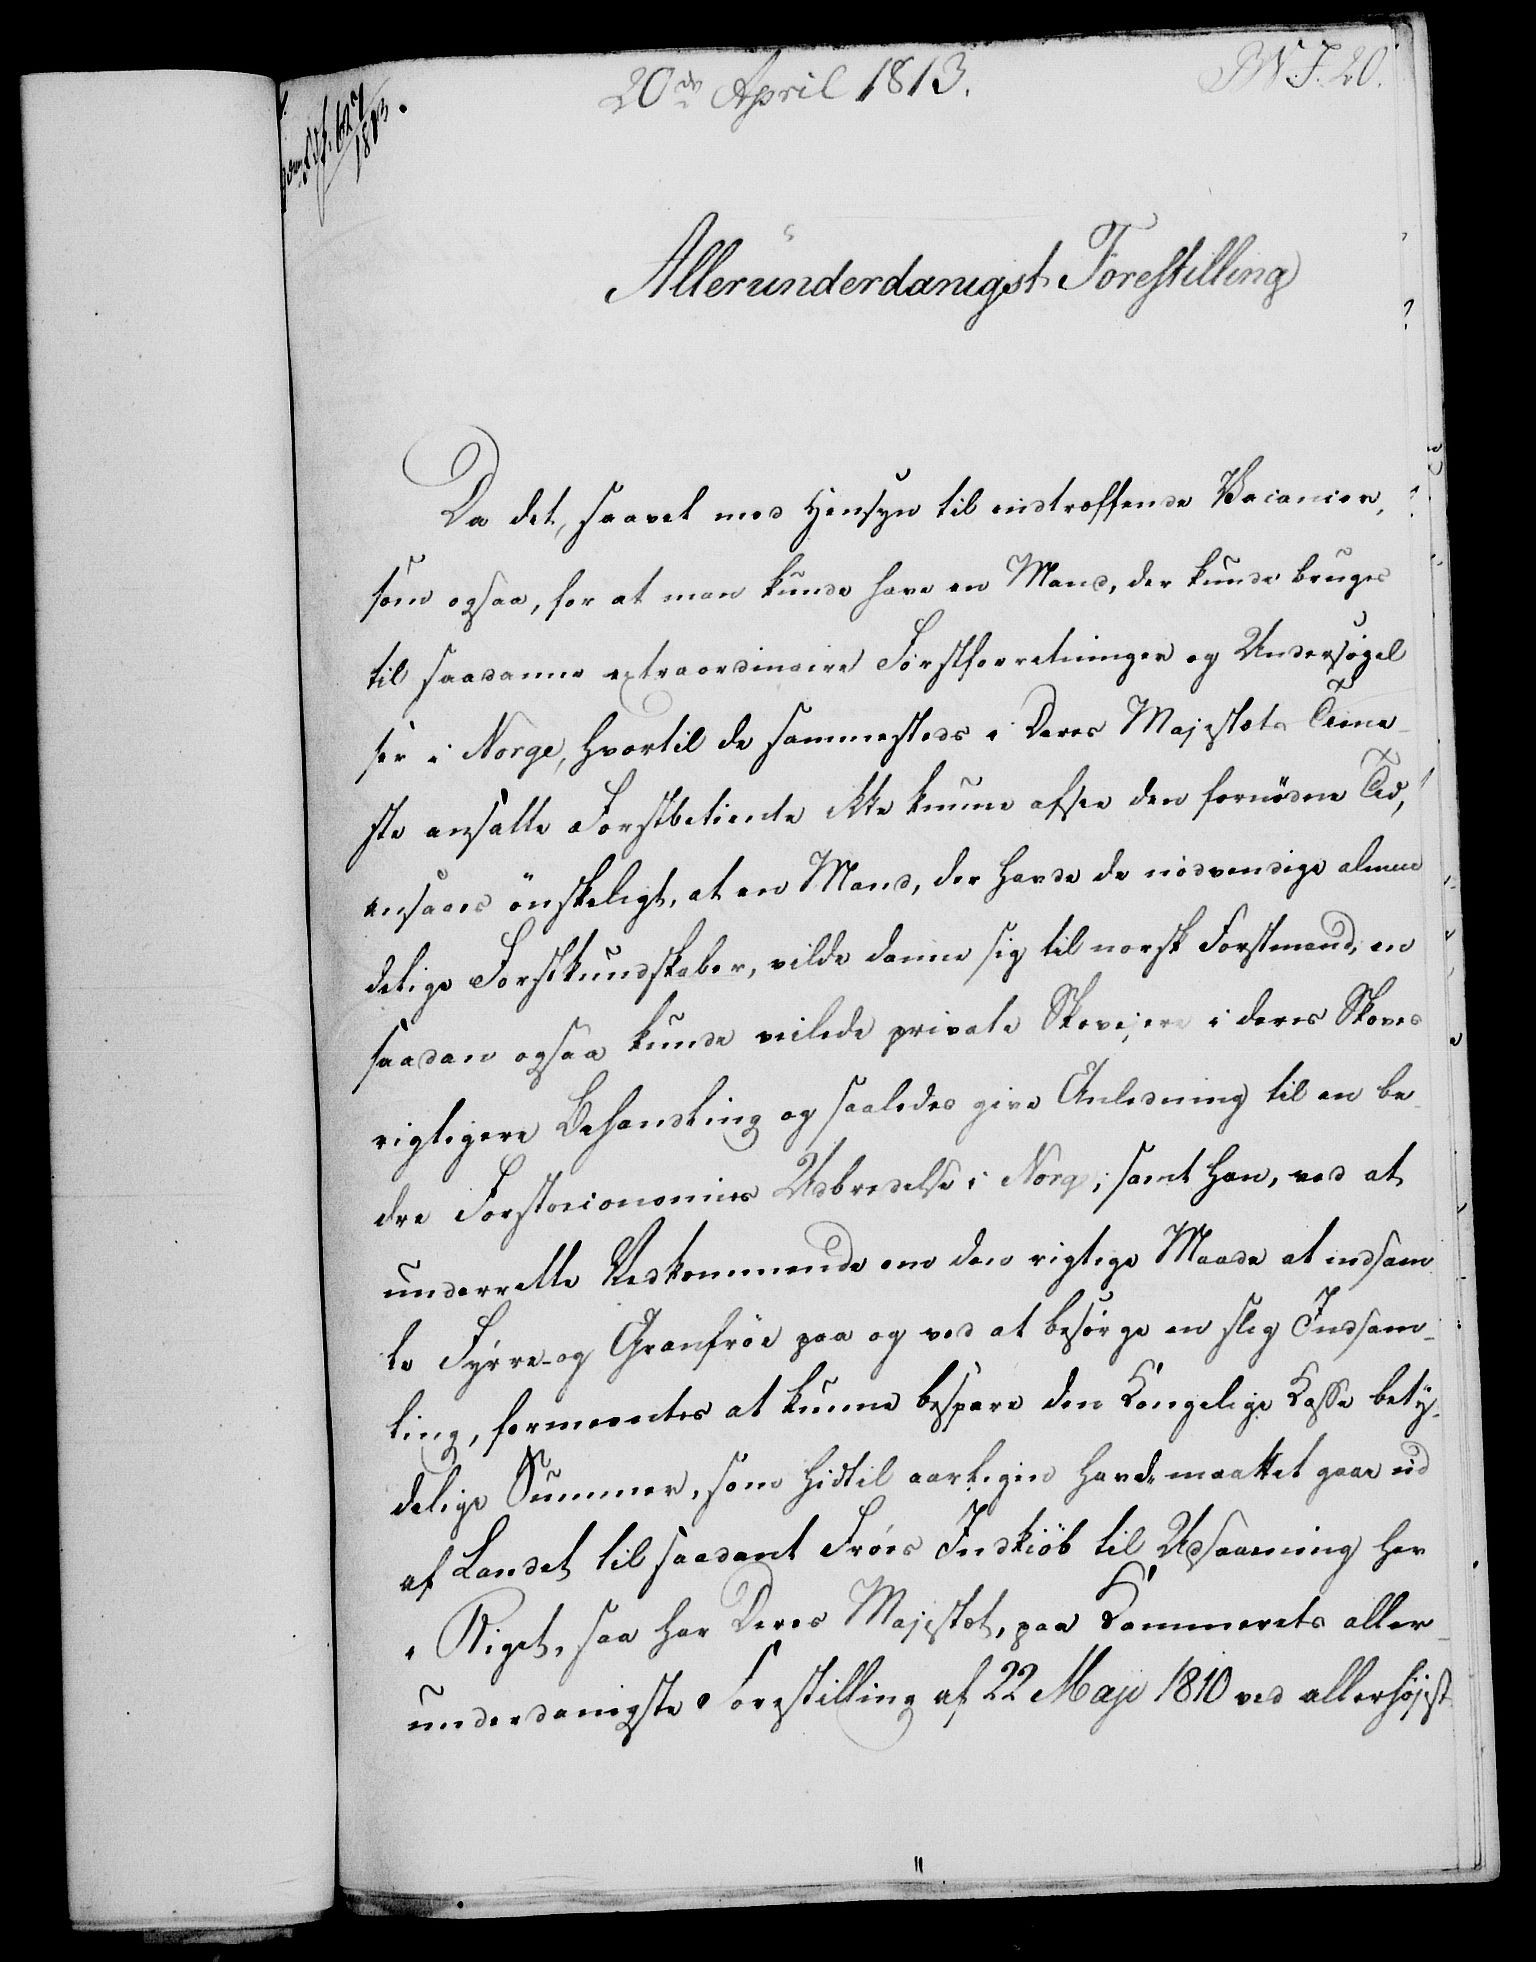 20de April 1813.
Alleründerdanigst Forestilling
Da det, saavel med Hensyn til indtræffende Vacancer,
som ogsaa, for at man kunde have en Mand, der kunde bruges
til saadanne extraordinaire Forstforretninger og Undersøgel
ser i Norge, hvortil de sammesteds i Deres Majestæts Tiene-
ste ansatte Forstbetiente ikke kunne afsee den fornödne Tid,
ansaaes önskeligt, at en Mand, der havde de nödvendige almin
delige Forstkundskaber, vilde danne sig til norsk Forstmand, en
saadan ogsaa kunde veilede private Skovejere i deres Skoves
rigtigere Behandling og saaledes give Anledning til en be-
dre Forstoeconomies Udbredelse i Norge; samt han, ved at
underrette Vedkommende om den rigtige Maade at indsam
le Fyrre- og Granfröe paa og ved at besörge en slig Indsam-
ling, formeentes at kunne bespare den Kongelige Kasse bety-
delige Summer, som hidtil aarligen havde maattet gaae ud
af Landet til saadant Fröes Indkiöb til Udsaaening her
i Riget, saa har Deres Majestæt, paa Kammerets aller-
underdanigste Forestilling af 22 Maji 1810 ved allerhöjest